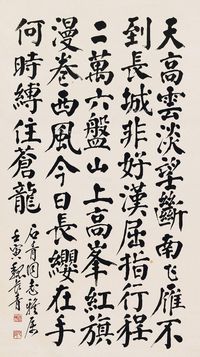 天高雲淡望斷南飞雁不
到長城非好漢屈指行程
二萬六盤山上高峯紅旗
漫卷西風今日長纓在手
何時縛住蒼龍
石青同志雅屬
壬寅魏長青